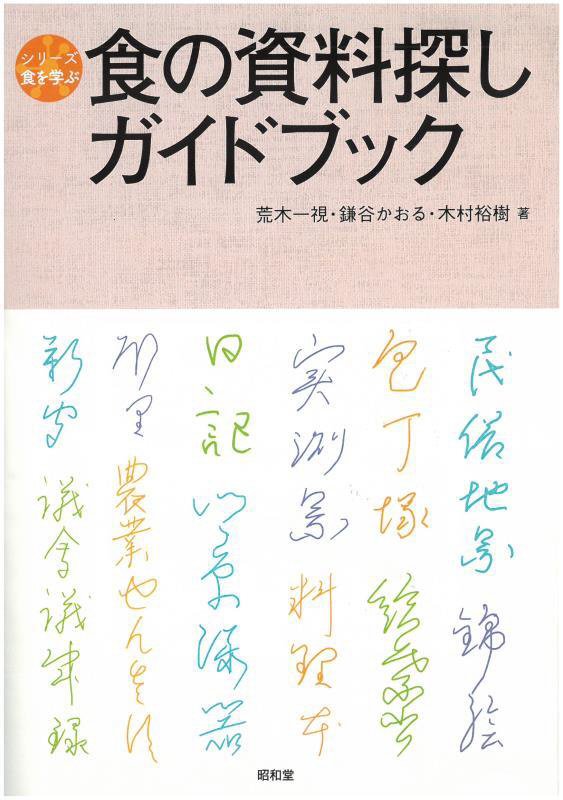 シリーズ
食を学ぶ
食の資料探し
ガイドブック
荒木一視・鎌谷かおる・木村裕樹 著
民俗地図 錦絵
包丁塚 絵葉書
実測図 料理本
日記
農業せんさす
新聞 議会議事録
昭和堂